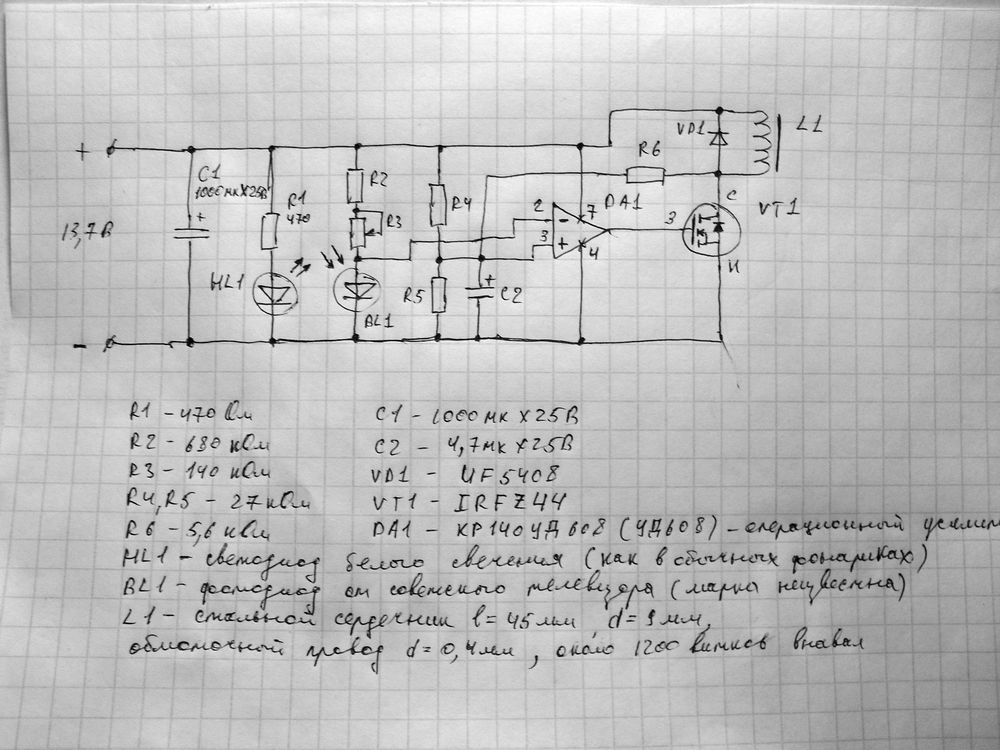 VD1
L1
+
R6
C1
1000мк X 25В
R2
+
R1
470
R3
R4
DA1
2
7
-
C
VT1
13,7В
3
+
3
4
HL1
И
R5
+
C2
BL1
-
R1 - 470 Ом
C1 - 1000мк X 25В
R2 - 680 кОм
C2 - 4,7мк X 25В
R3 - 140 кОм
VD1 - UF5408
R4, R5 - 27 кОм
VT1 - IRFZ44
R6 - 5,6 кОм
DA1 - КР140УД608 (УД608) - операционный усилит
HL1 - светодиод белого свечения (как в обычных фонариках)
BL1 - фотодиод от советского телевизора (марка неизвестна)
L1 - стальной сердечник l = 45 мм, d = 9 мм,
обмоточный провод d = 0,4 мм, около 1200 витков внавал